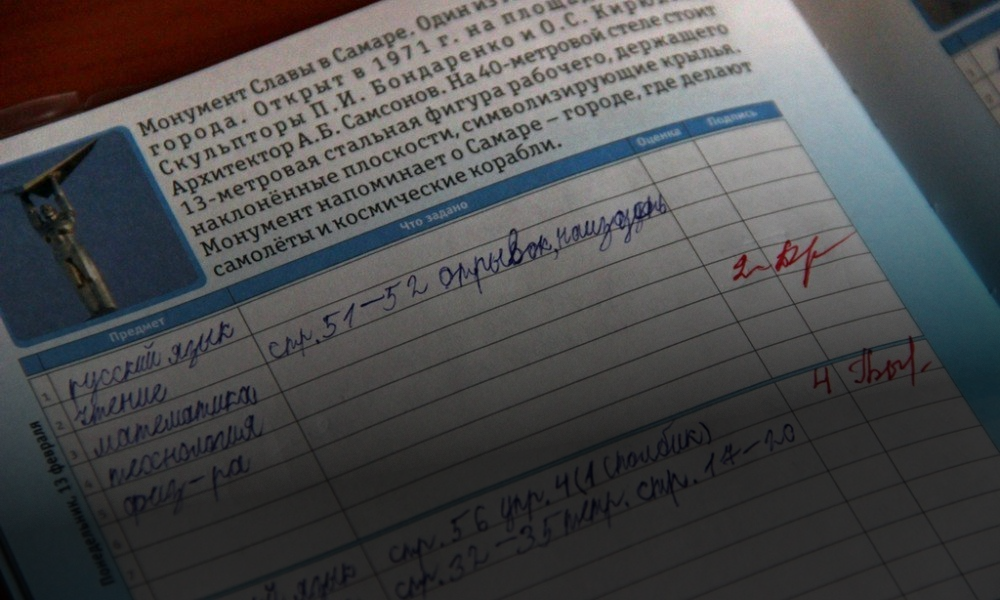 Монумент Славы в Самаре. Один из
города. Открыт в 1971 г. на площа
Скульпторы П.И. Бондаренко и О.С. Кирю
Архитектор А.Б. Самсонов. На 40-метровой стеле стоит
13-метровая стальная фигура рабочего, держащего
наклонённые плоскости, символизирующие крылья.
Монумент напоминает о Самаре – городе, где делают
самолёты и космические корабли.
Предмет Что задано Оценка Подпись
Понедельник, 13 февраля
1 русский язык
2 чтение стр. 51–52 отрывок, наизусть
3 математика
4 технология
5 физ-ра
6
7
язык стр. 56 упр. 4 (1 столбик) 4
стр. 32–35 тетр. стр. 17–20